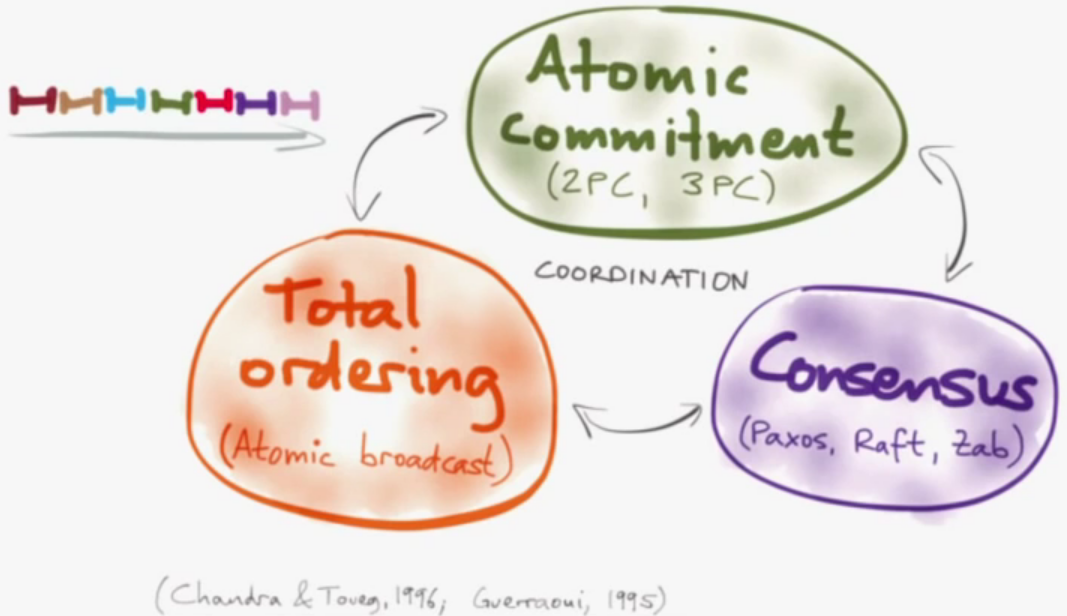 Atomic
commitment
(2PC, 3PC)
COORDINATION
Total
ordering
(Atomic broadcast)
Consensus
(Paxos, Raft, Zab)
(Chandra & Toueg, 1996; Guerraoui, 1995)